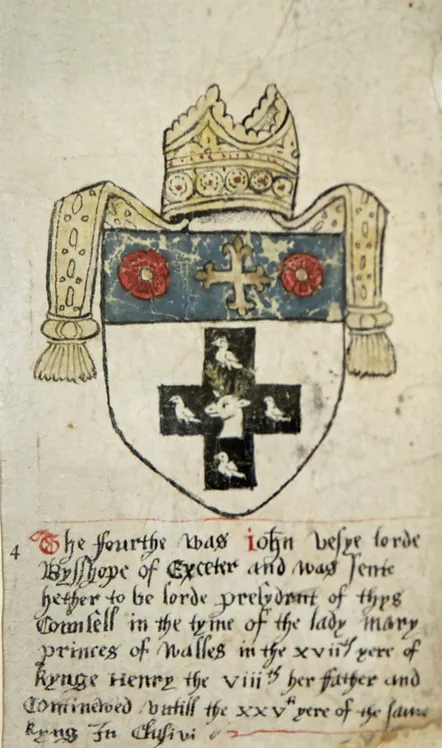 4 The fourthe was iohn vesye lorde
Bysshope of Exceter and was sente
hether to be lorde presydent of thys
Counsell in the tyme of the lady mary
princes of walles in the xviith yere of
kynge Henry the viiith her father and
Cominewed vntill the xxvth yere of the same
kyng In Clusivi